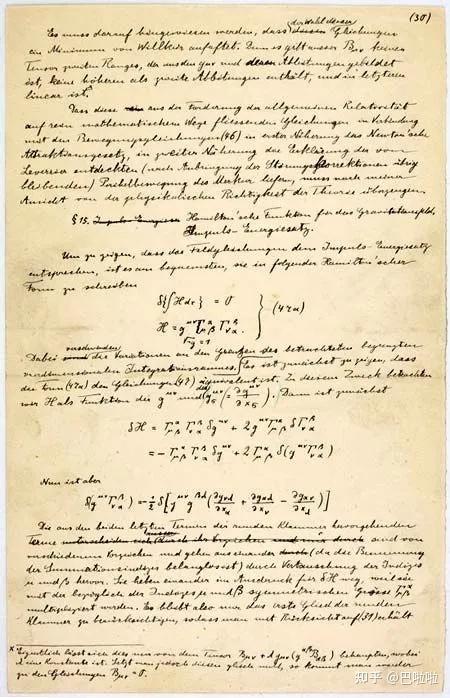 (30)
der Wahl dieser
Es muss darauf hingewiesen werden, dass diesen Gleichungen
ein Minimum von Willkür anhaftet. Denn es gibt ausser Bμν keinen
Tensor zweiten Ranges, der aus den gμν und deren Ableitungen gebildet
ist, keine höheren als zweite Ableitungen enthält, und in letzteren
linear ist.*
Dass diese aus der Forderung der allgemeinen Relativität
auf rein mathematischem Wege fliessenden Gleichungen in Verbindung
mit den Bewegungsgleichungen (46) in erster Näherung das Newton'sche
Attraktionsgesetz, in zweiter Näherung die Erklärung der von
Leverrier entdeckten (nach Anbringung der Störungskorrektionen übrig
bleibenden) Perihelbewegung des Merkur liefern, muss nach meiner
Ansicht von der physikalischen Richtigkeit der Theorie überzeugen.
§15. Impuls-Energiesatz Hamilton'sche Funktion für das Gravitationsfeld,
Impuls-Energiesatz.
Um zu zeigen, dass die Feldgleichungen dem Impuls-Energiesatz
entsprechen, ist es am bequemsten, sie in folgender Hamilton'scher
Form zu schreiben
δ{∫H dτ} = 0
(47a)
H = g^μν Γ^α_μβ Γ^β_να
√-g = 1
verschwinden
Dabei sind die Variationen an den Grenzen des betrachteten begrenzten
vierdimensionalen Integrationsraumes. Es ist zunächst zu zeigen, dass
die Form (47a) den Gleichungen (47) äquivalent ist. Zu diesem Zweck betrachten
wir H als Funktion der g^μν und der g^μν_σ (= ∂g^μν/∂x_σ). Dann ist zunächst
δH = Γ^α_μβ Γ^β_να δg^μν + 2g^μν Γ^α_μβ δΓ^β_να
= - Γ^α_μβ Γ^β_να δg^μν + 2Γ^α_μβ δ(g^μν Γ^β_να)
Nun ist aber
δ(g^μν Γ^β_να) = -½ δ[g^μν g^βλ (∂g_νλ/∂x_α + ∂g_αλ/∂x_ν - ∂g_αν/∂x_λ)]
Die aus den beiden letzten Termen der runden Klammer hervorgehenden
Terme unterscheiden sich durch ihr Vorzeichen und sind von
verschiedenem Vorzeichen und gehen auseinander durch (da die Benennung
der Summationsindizes belanglos ist) durch Vertauschung der Indizes
μ und β hervor. Sie heben einander im Ausdruck für δH weg, weil sie
mit der bezüglich der Indizes μ und β symmetrischen Grösse Γ^α_μβ
multipliziert werden. Es bleibt also nur das erste Glied der runden
Klammer zu berücksichtigen, sodass man mit Rücksicht auf (31) erhält
* Eigentlich lässt sich dies nur von dem Tensor Bμν + λ gμν (g^αβ Bαβ) behaupten, wobei
λ eine Konstante ist. Setzt man jedoch diesen gleich null, so kommt man wieder
zu den Gleichungen Bμν = 0.
知乎 @巴啦啦